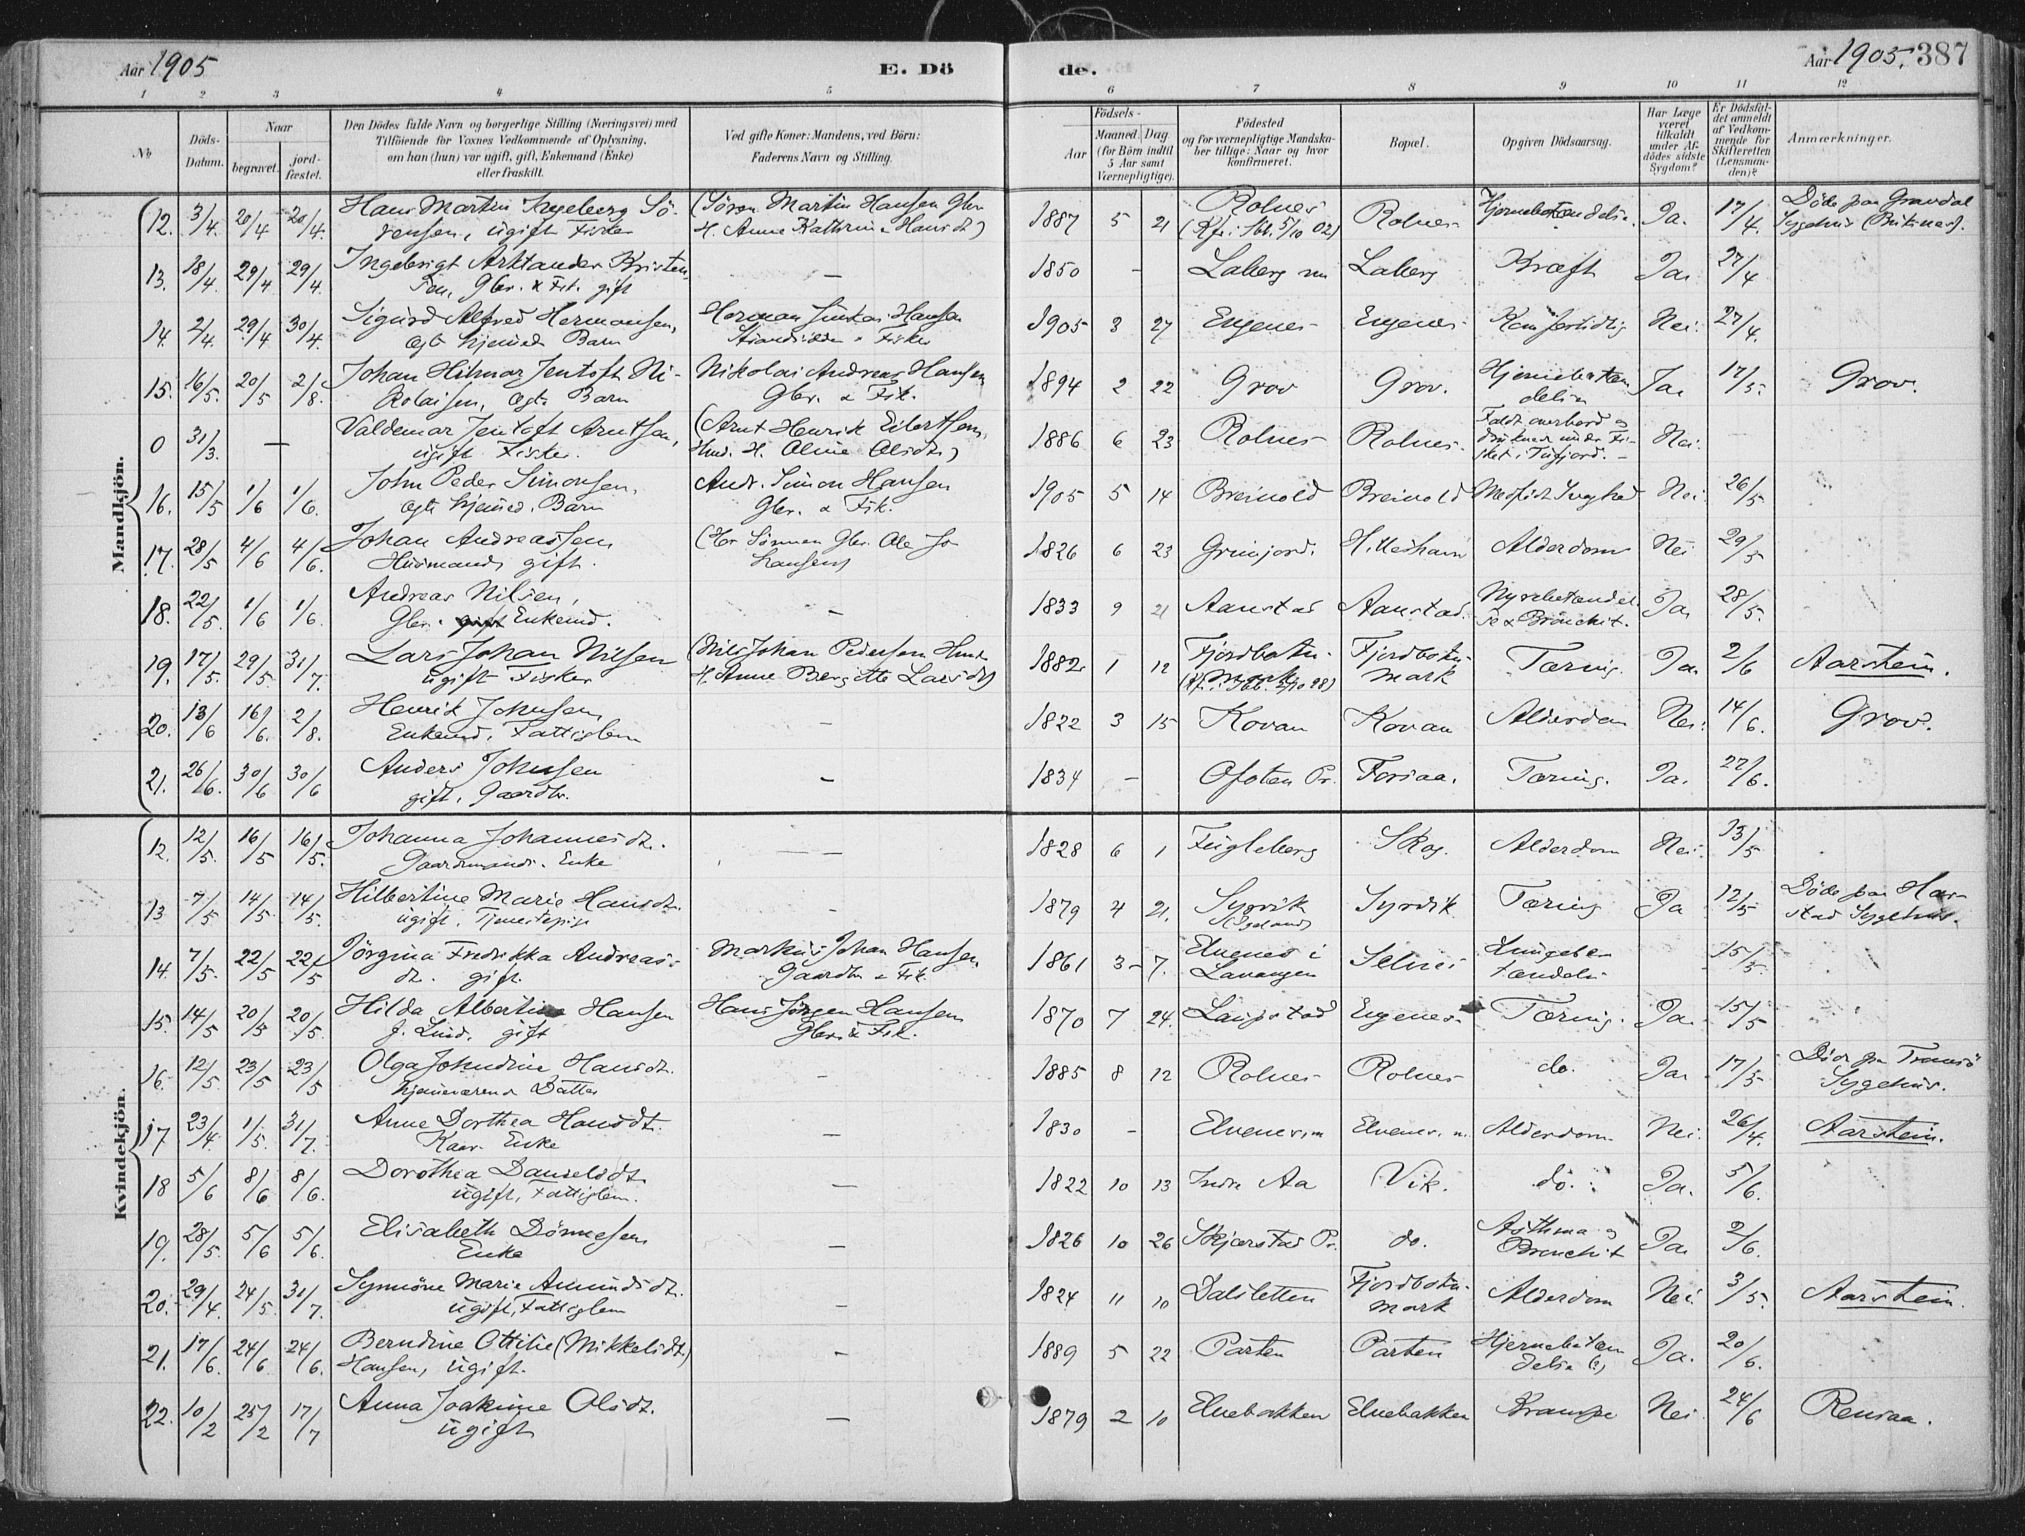 Aar 1905
E. Dö
de.
Aar 1905. 387
1 2 3 4 5 6 7 8 9 10 11 12
No
Döds-
Datum.
Naar
begravet.
jord-
fæstet.
Den Dödes fulde Navn og borgerlige Stilling (Næringsvei) med
Tilföiende for Voxnes Vedkommende af Oplysning,
om han (hun) var ugift, gift, Enkemand (Enke)
eller fraskilt.
Ved gifte Koner: Mandens, ved Börn:
Faderens Navn og Stilling.
Födsels-
Aar
Maaned. Dag.
(for Börn indtil
5 Aar samt
Værnepligtige).
Födested
og for værnepligtige Mandska-
ber tillige: Naar og hvor
konfirmeret.
Bopæl.
Opgiven Dödsaarsag.
Har Læge
været
tilkaldt
under Af-
dödes sidste
Sygdom?
Er Dödsfal-
det anmeldt
af Vedkom-
mende for
Skifteretten
(Lensman-
den)?
Anmærkninger.
Mandkjön.
12. 3/4. 20/4 20/4. Hans Martin Ingeberg Sö-
rensen, ugift Fisker
(Sören Martin Hansen Gbr.
H. Anne Kathrine Hansdt)
1887 5 21 Rolnes
5/10 02) Rolnes Ja. 17/4. Döde paa Gravdal
Sygehus
13. 18/4. 29/4 29/4. Ingebrigt Arktander Kristen-
sen, Gbr. & Fisk. gift
— 1850 - Laberg Laberg Kræft Ja. 27/4
14. 2/4. 29/4 30/4. Sigurd Alfred Hermansen,
ægte hjemmed. Barn
Herman Hansen
Fisker
1905 3 27 Engenes Engenes Kom Nei. 27/4.
15. 16/5. 20/5 2/8. Johan Hilmar Jentoft Ni-
kolaisen, ægte Barn
Nikolai Andreas Hansen
Gbr. & Fisk.
1894 2 22 Grov Grov. Hjernebetæn
delse Ja 17/5. Grov.
0 31/3. — Valdemar Jentoft Arntsen,
ugift Fisker.
(Arnt Henrik Eilertsen,
Hmd. H. Oline Olsdt)
1886 6 23 Rolnes Rolnes. Faldt overbord og
druknede under Fi-
sket i Tufjord. — Nei.
16. 15/5 1/6 1/6. John Peder Simonsen,
ægte hjemmed. Barn
Andr. Simon Hansen
Gbr. & Fisk.
1905 5 14 Breivold Breivold Medfödt Svaghed Nei 26/5
17. 28/5 4/6 4/6. Johan Andreassen,
Husmand, gift.
Gbr. Ole Jo
hansen)
1826 6 23 Grinjord. Alderdom Nei 29/5
18. 22/5. 1/6 1/6. Andreas Nilsen,
Gbr. gift Enkemd.
— 1833 9 21 Aanstad Aanstad. Nyrebetændel
se & Bronchit. Ja 28/5.
19. 17/5. 29/5. 31/7. Lars Johan Nilsen
ugift Fisker
(Nils Johan Pedersen Hmd
H. Anne Bergitte Larsdt)
1882 1 12 Fjordbotn-
mark
Fjordbotn-
mark Tæring. Ja. 2/6 Aarstein.
20. 13/6 16/6. 2/8. Henrik Johnsen,
Enkemd. Fattiglem
— 1822 3 15 Kovan Kovan Alderdom Nei. 14/6. Grov.
21. 26/6. 30/6 30/6 Anders Johnsen
gift. Gaardbr.
— 1834 - Ofoten Pr. Forsaa. Tæring. Ja. 27/6.
Kvindekjön.
12. 12/5. 16/5 16/5. Johanna Johannesdt.
Gaardmands Enke
— 1828 6 1 Fugleberg Skog. Alderdom Nei. 13/5
13 7/5 14/5. 14/5. Hilbertine Marie Hansdt.
ugift. Tjenestepige
- 1879 4 21. Syrvik Syrvik Tæring Ja 12/5 Döde paa Har-
stad Sygehus.
14. 7/5. 22/5 22/5 Jörgine Fredrikka Andreas-
dt. gift.
Markus Johan Hansen
Gaardbr. & Fisk.
1861 3 7. Elvenes i
Lavangen Selnes Lungebe-
tændelse 15/5.
15. 14/5 20/5 20/5. Hilda Albertine Hansen
f. Lind. gift
Hans Jörgen Hansen
Gbr. & Fisk.
1870 7 24. Laupstad Engenes. Tæring. Ja. 15/5
16. 12/5 23/5 23/5 Olga Johndine Hansdt.
hjemmeværende Datter
— 1885 8 12 Rolnes Rolnes do. Ja. 17/5 Döde paa Tromsö
Sygehus.
17 23/4. 1/5. 31/7. Anne Dorthea Hansdt.
Enke
— 1830 - Elvenes Elvenes Alderdom. Nei. 26/4. Aarstein.
18 5/6 8/6 8/6. Dorothea Danielsdt.
ugift, Fattiglem.
— 1822 10 13 Indre Aa Vik. do. Ja. 5/6.
19. 28/5. 5/6 5/6. Elisabeth Dönnesen
Enke
— 1826 10 26 Skjerstad Pr. do. Asthma og
Bronchit Ja. 2/6.
20. 29/4. 24/5. 31/7. Synnöve Marie Amundsdt.
ugift, Fattiglem
— 1824 11 10 Dalsletten Fjordbotn-
mark Alderdom Nei. 3/5. Aarstein.
21. 17/6. 24/6 24/6. Berndine Ottilie (Mikkelsdt.)
Hansen, ugift.
— 1889 5 22 Parten Parten Hjernebetæn
delse Ja. 20/6.
22. 10/2 25/2 17/7 Anna Joakime Olsdt.
ugift
— 1879 2 10 Elvebakken Elvebakken Krampe Nei 24/6 Rensaa.